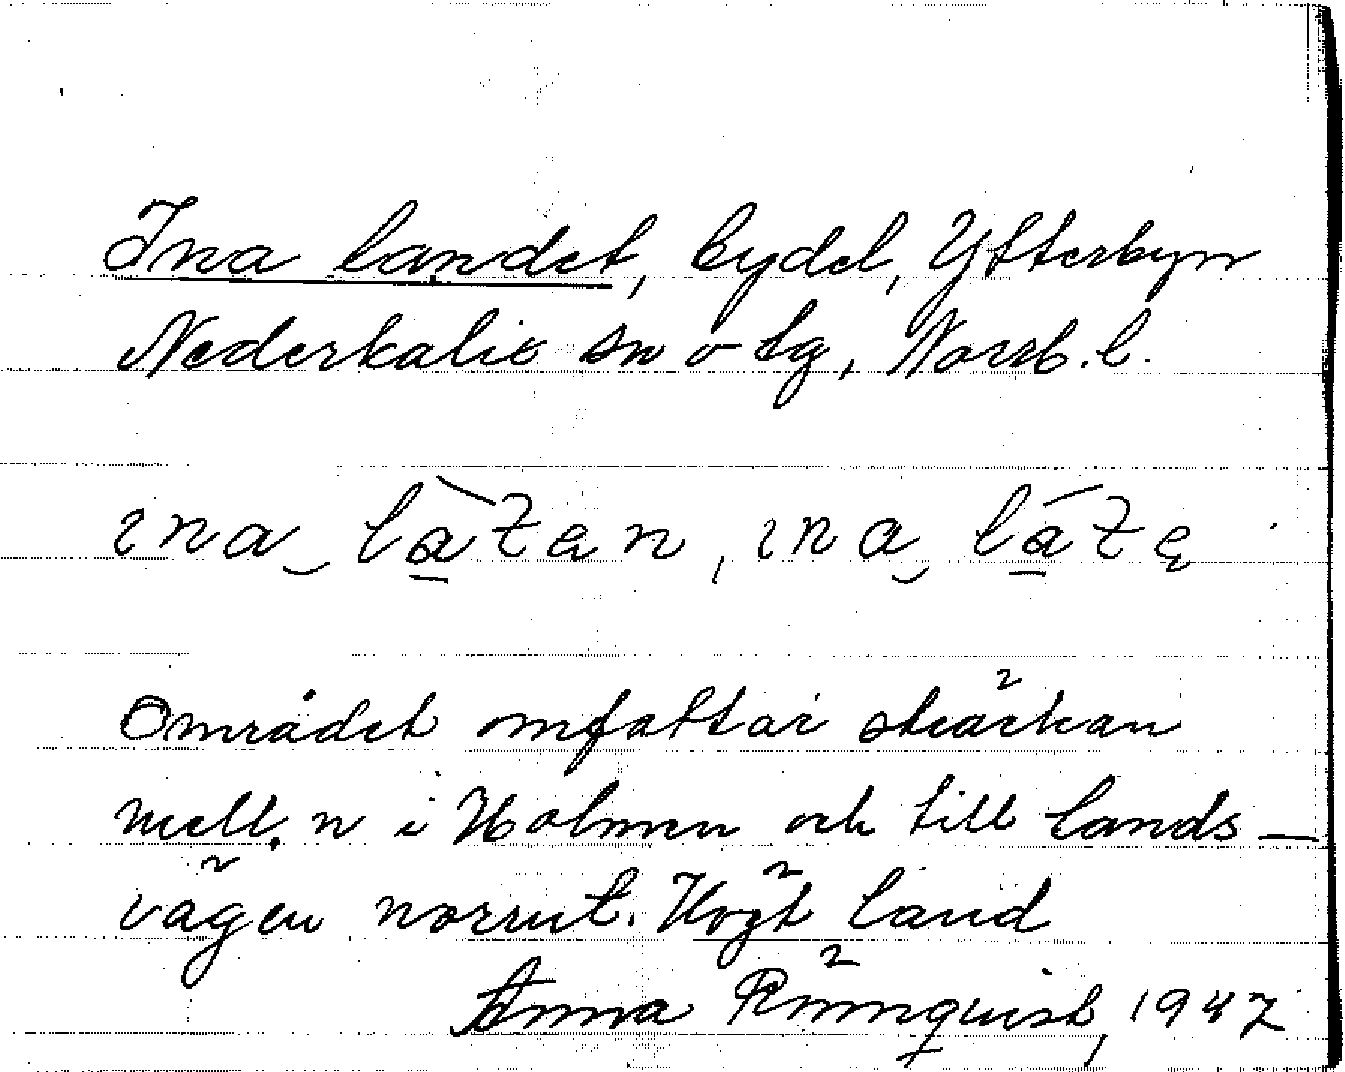 Ina landet, bydel, Ytterbyn
Nederkalix sn o tg, Norrb. l.
ina
Området omfattar sträckan
mell. n i Holmen och till lands-
vägen norrut. Högt land
Anna Rönnqvist, 1947